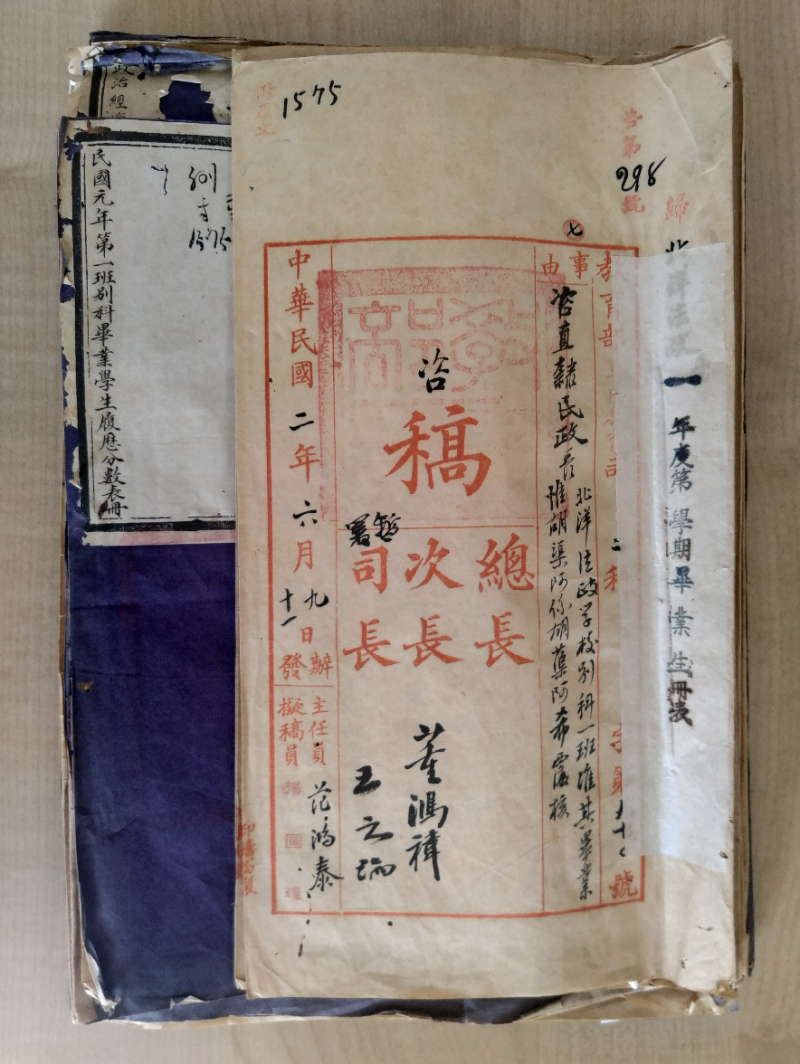 1575
咨第
298
號
歸
北洋法政
一
年度第 學期畢業生冊表
教育部
二科
字第
號
事由
咨直隸民政長
北洋法政学校别科一班准其畢業
惟胡渠阿係胡蕖阿希震核
咨
稿
總長
次長
司長
暫署
董鴻禕
王之瑞
中華民國二年六月
九日辦
十一發
主任員 范鴻泰
擬稿員
民國元年第一班别科畢業學生履歷分數表冊
政治經濟